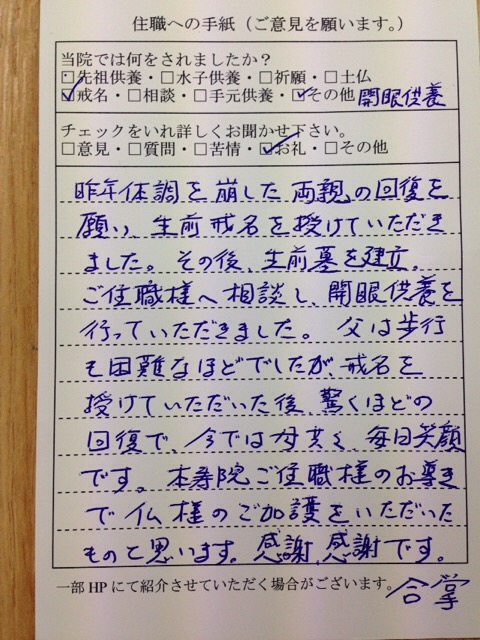 住職への手紙（ご意見を願います。）
当院では何をされましたか？
□先祖供養・□水子供養・□祈願・□土仏
☑戒名・□相談・□手元供養・☑その他 開眼供養
チェックをいれ詳しくお聞かせ下さい。
□意見・□質問・□苦情・☑お礼・□その他
昨年体調を崩した両親の回復を
願い、生前戒名を授けていただき
ました。その後、生前墓を建立。
ご住職様へ相談し、開眼供養を
行っていただきました。父は歩行
も困難なほどでしたが、戒名を
授けていただいた後、驚くほどの
回復で、今では母共々、毎日笑顔
です。本寿院ご住職様のお導き
で仏様のご加護をいただいた
ものと思います。感謝、感謝です。
一部HPにて紹介させていただく場合がございます。合掌